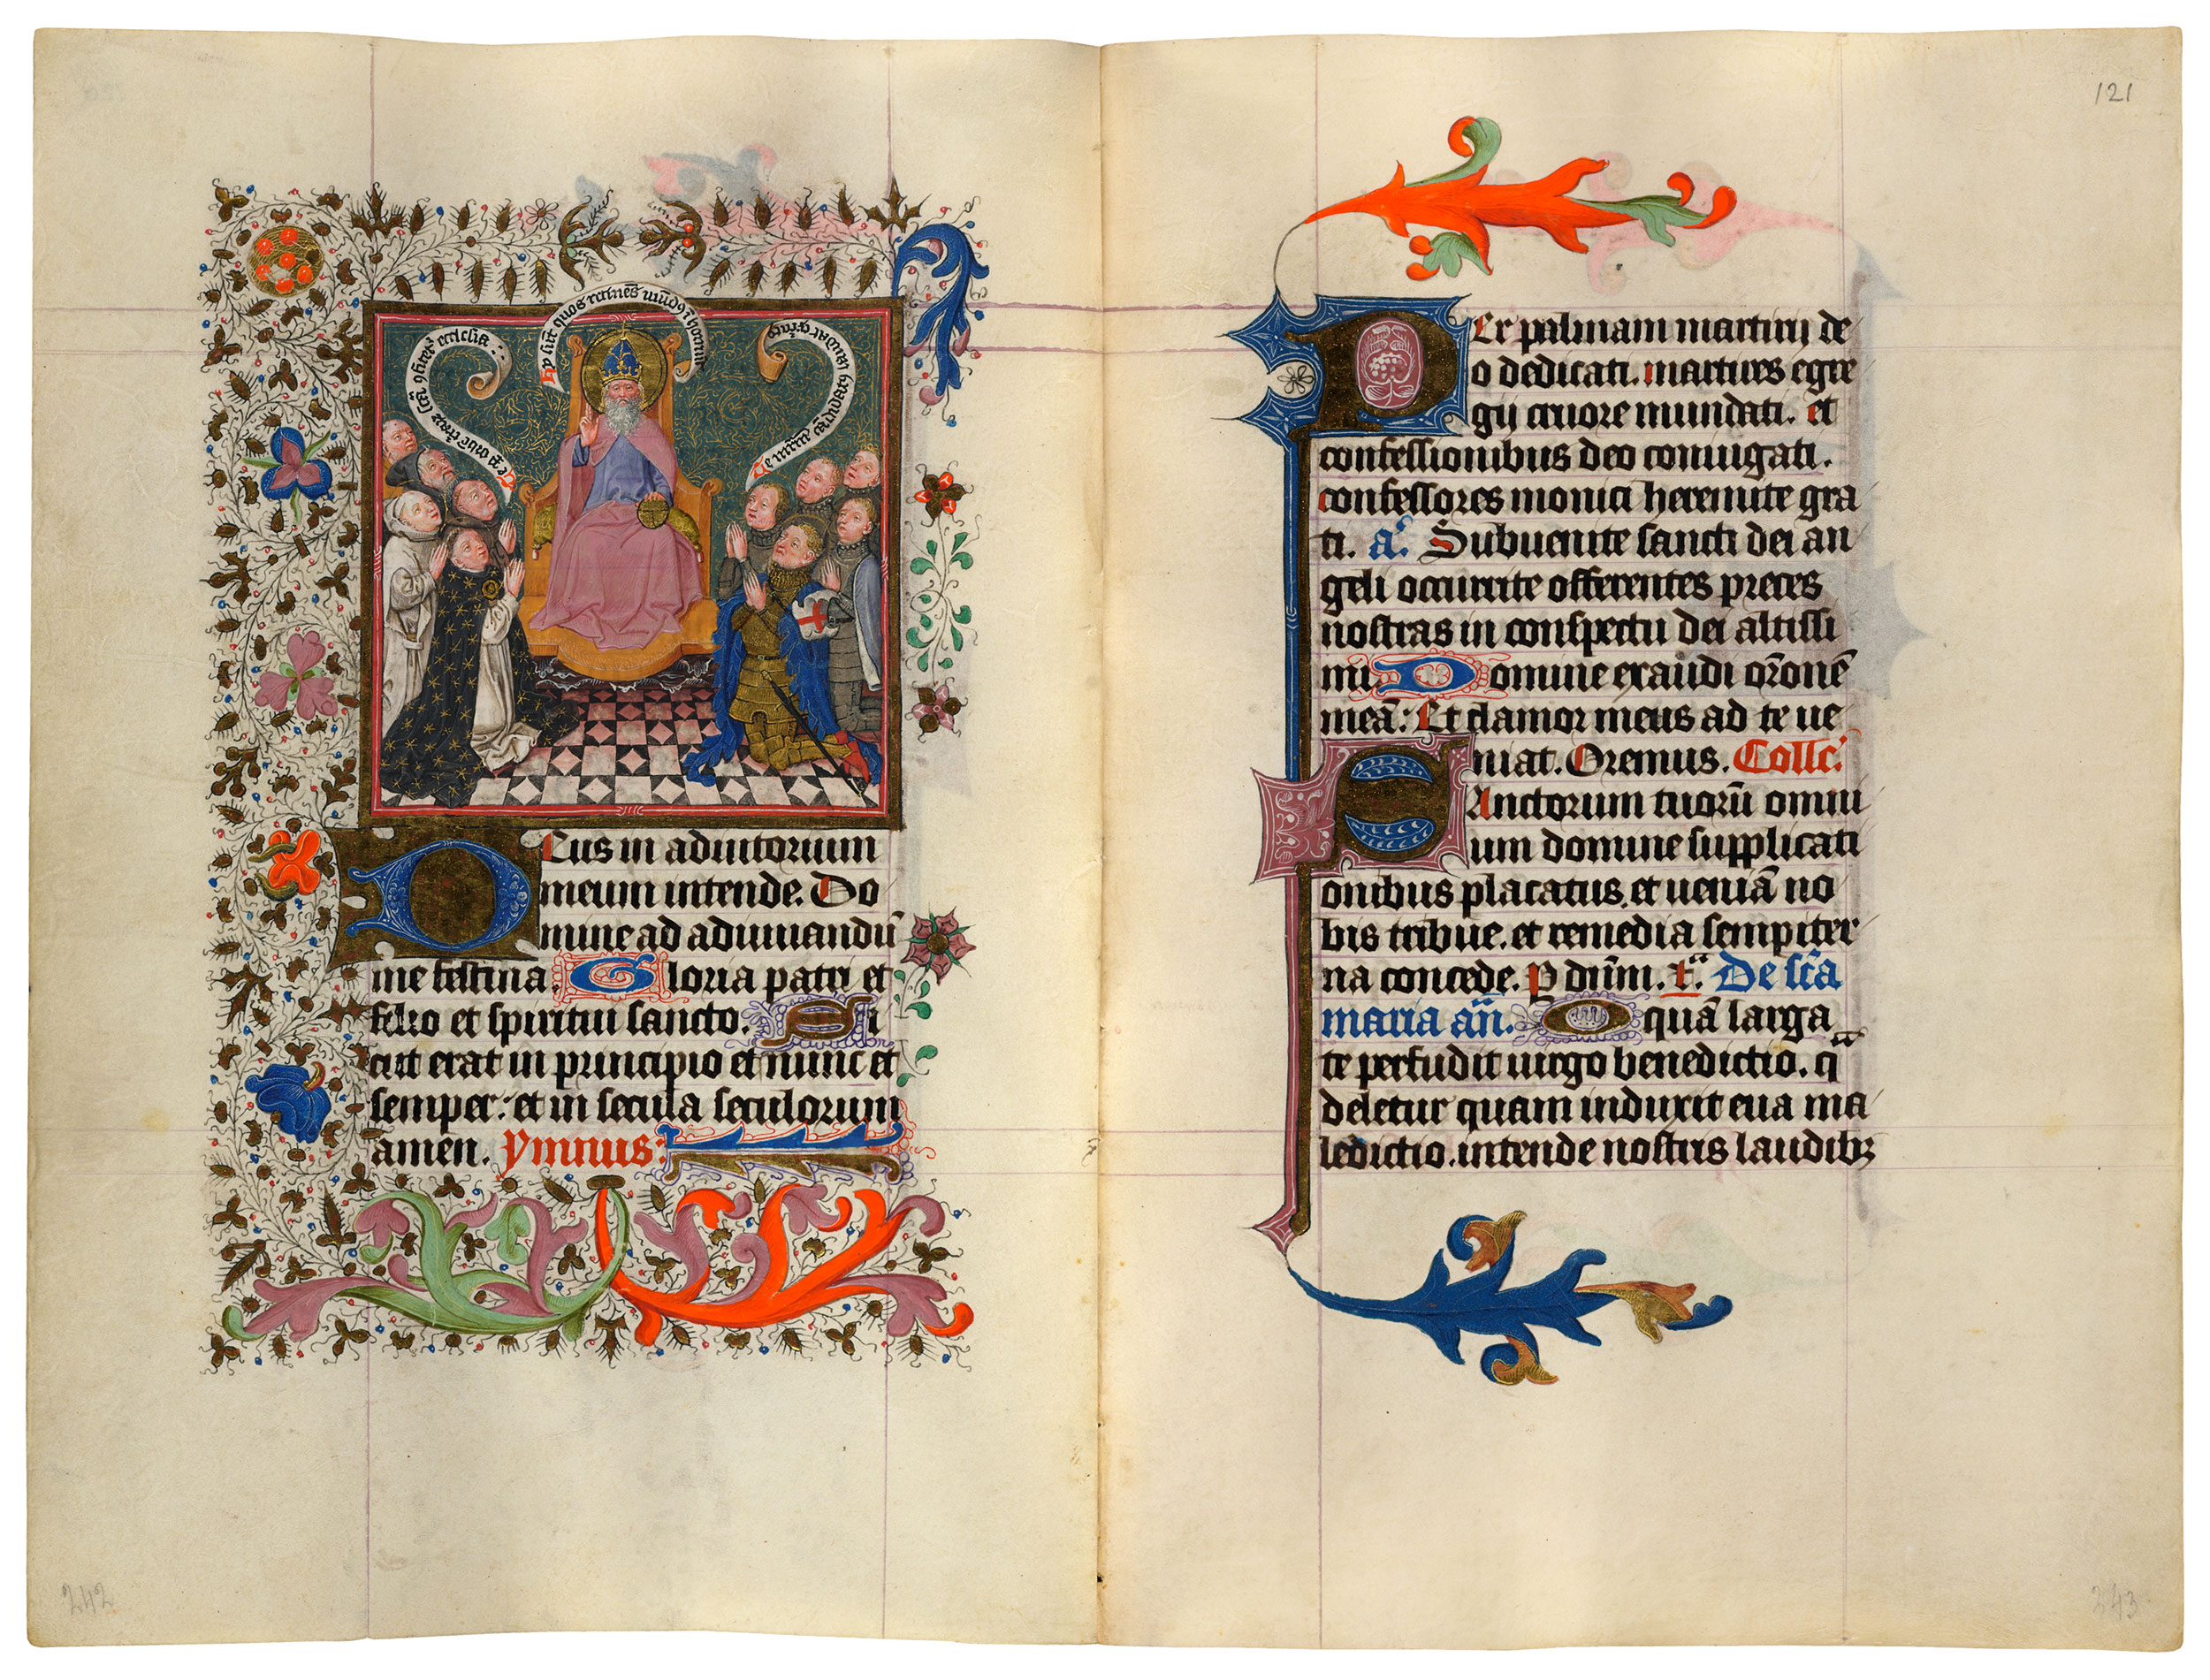 Te p orbē
sctā 9fitet' ecclesia
hy sūt quos retinēs mūdꝰ ī horruit
Te mr̄m cādidatꝰ laudat exercitꝰ
Deus in adiutorium
meum intende. Do
mine ad adiuuandū
me festina. Gloria patri et
filio et spiritui sancto. Si
cut erat in principio et nunc et
semper: et in secula seculorum
amen. ymnus:
242
121
Per palmam martirij de
o dedicati. martires egre
gij cruore mundati. et
confessionibus deo coniugati.
confessores monici heremite gra
ti. a. Subuenite sancti dei an
geli occurrite offerentes preces
nostras in conspectu dei altissi
mi. Domine exaudi orōnē
meā: Et clamor meus ad te ue
niat. Oremus. Collc̄.
Sanctorum tuorū omni
um domine supplicati
onibus placatus. et ueniā no
bis tribue. et remedia sempiter
na concede. P dn̄m. t. De sc̄a
maria an̄. O quā larga
te perfudit uirgo benedictio. qua
deletur quam induxit eua ma
ledictio. intende nostris laudibꝫ
243